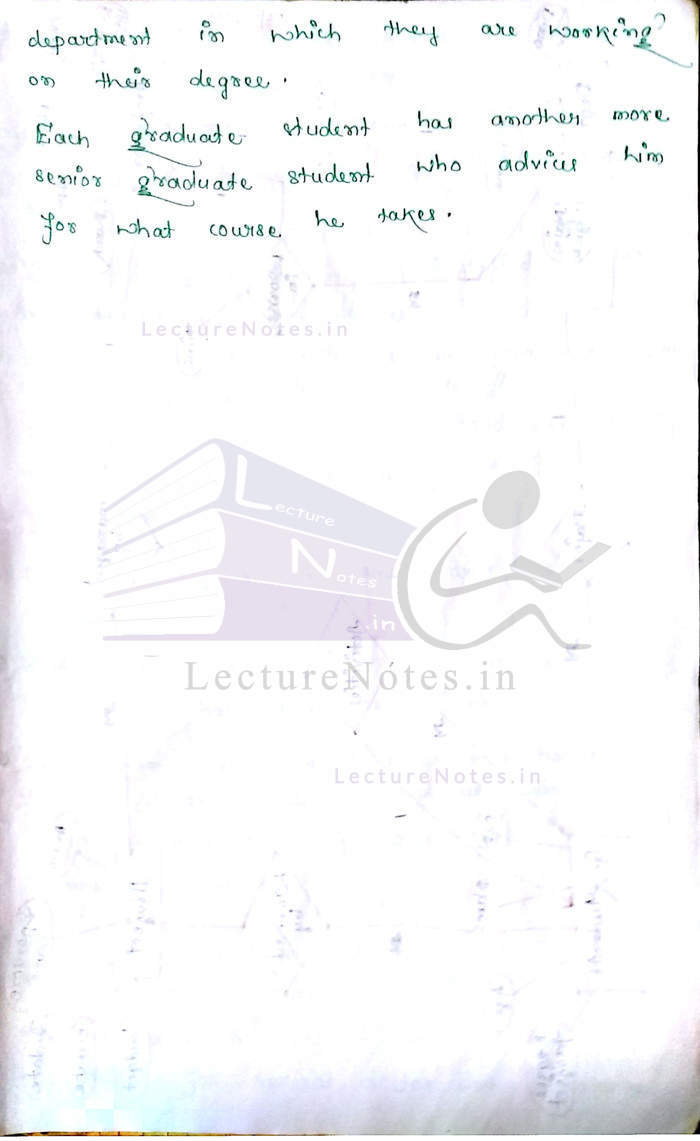 department in which they are working
on their degree.
Each graduate student has another more
senior graduate student who advices him
for what course he takes.
LectureNotes.in
Lecture
Notes
.in
LectureNotes.in
LectureNotes.in